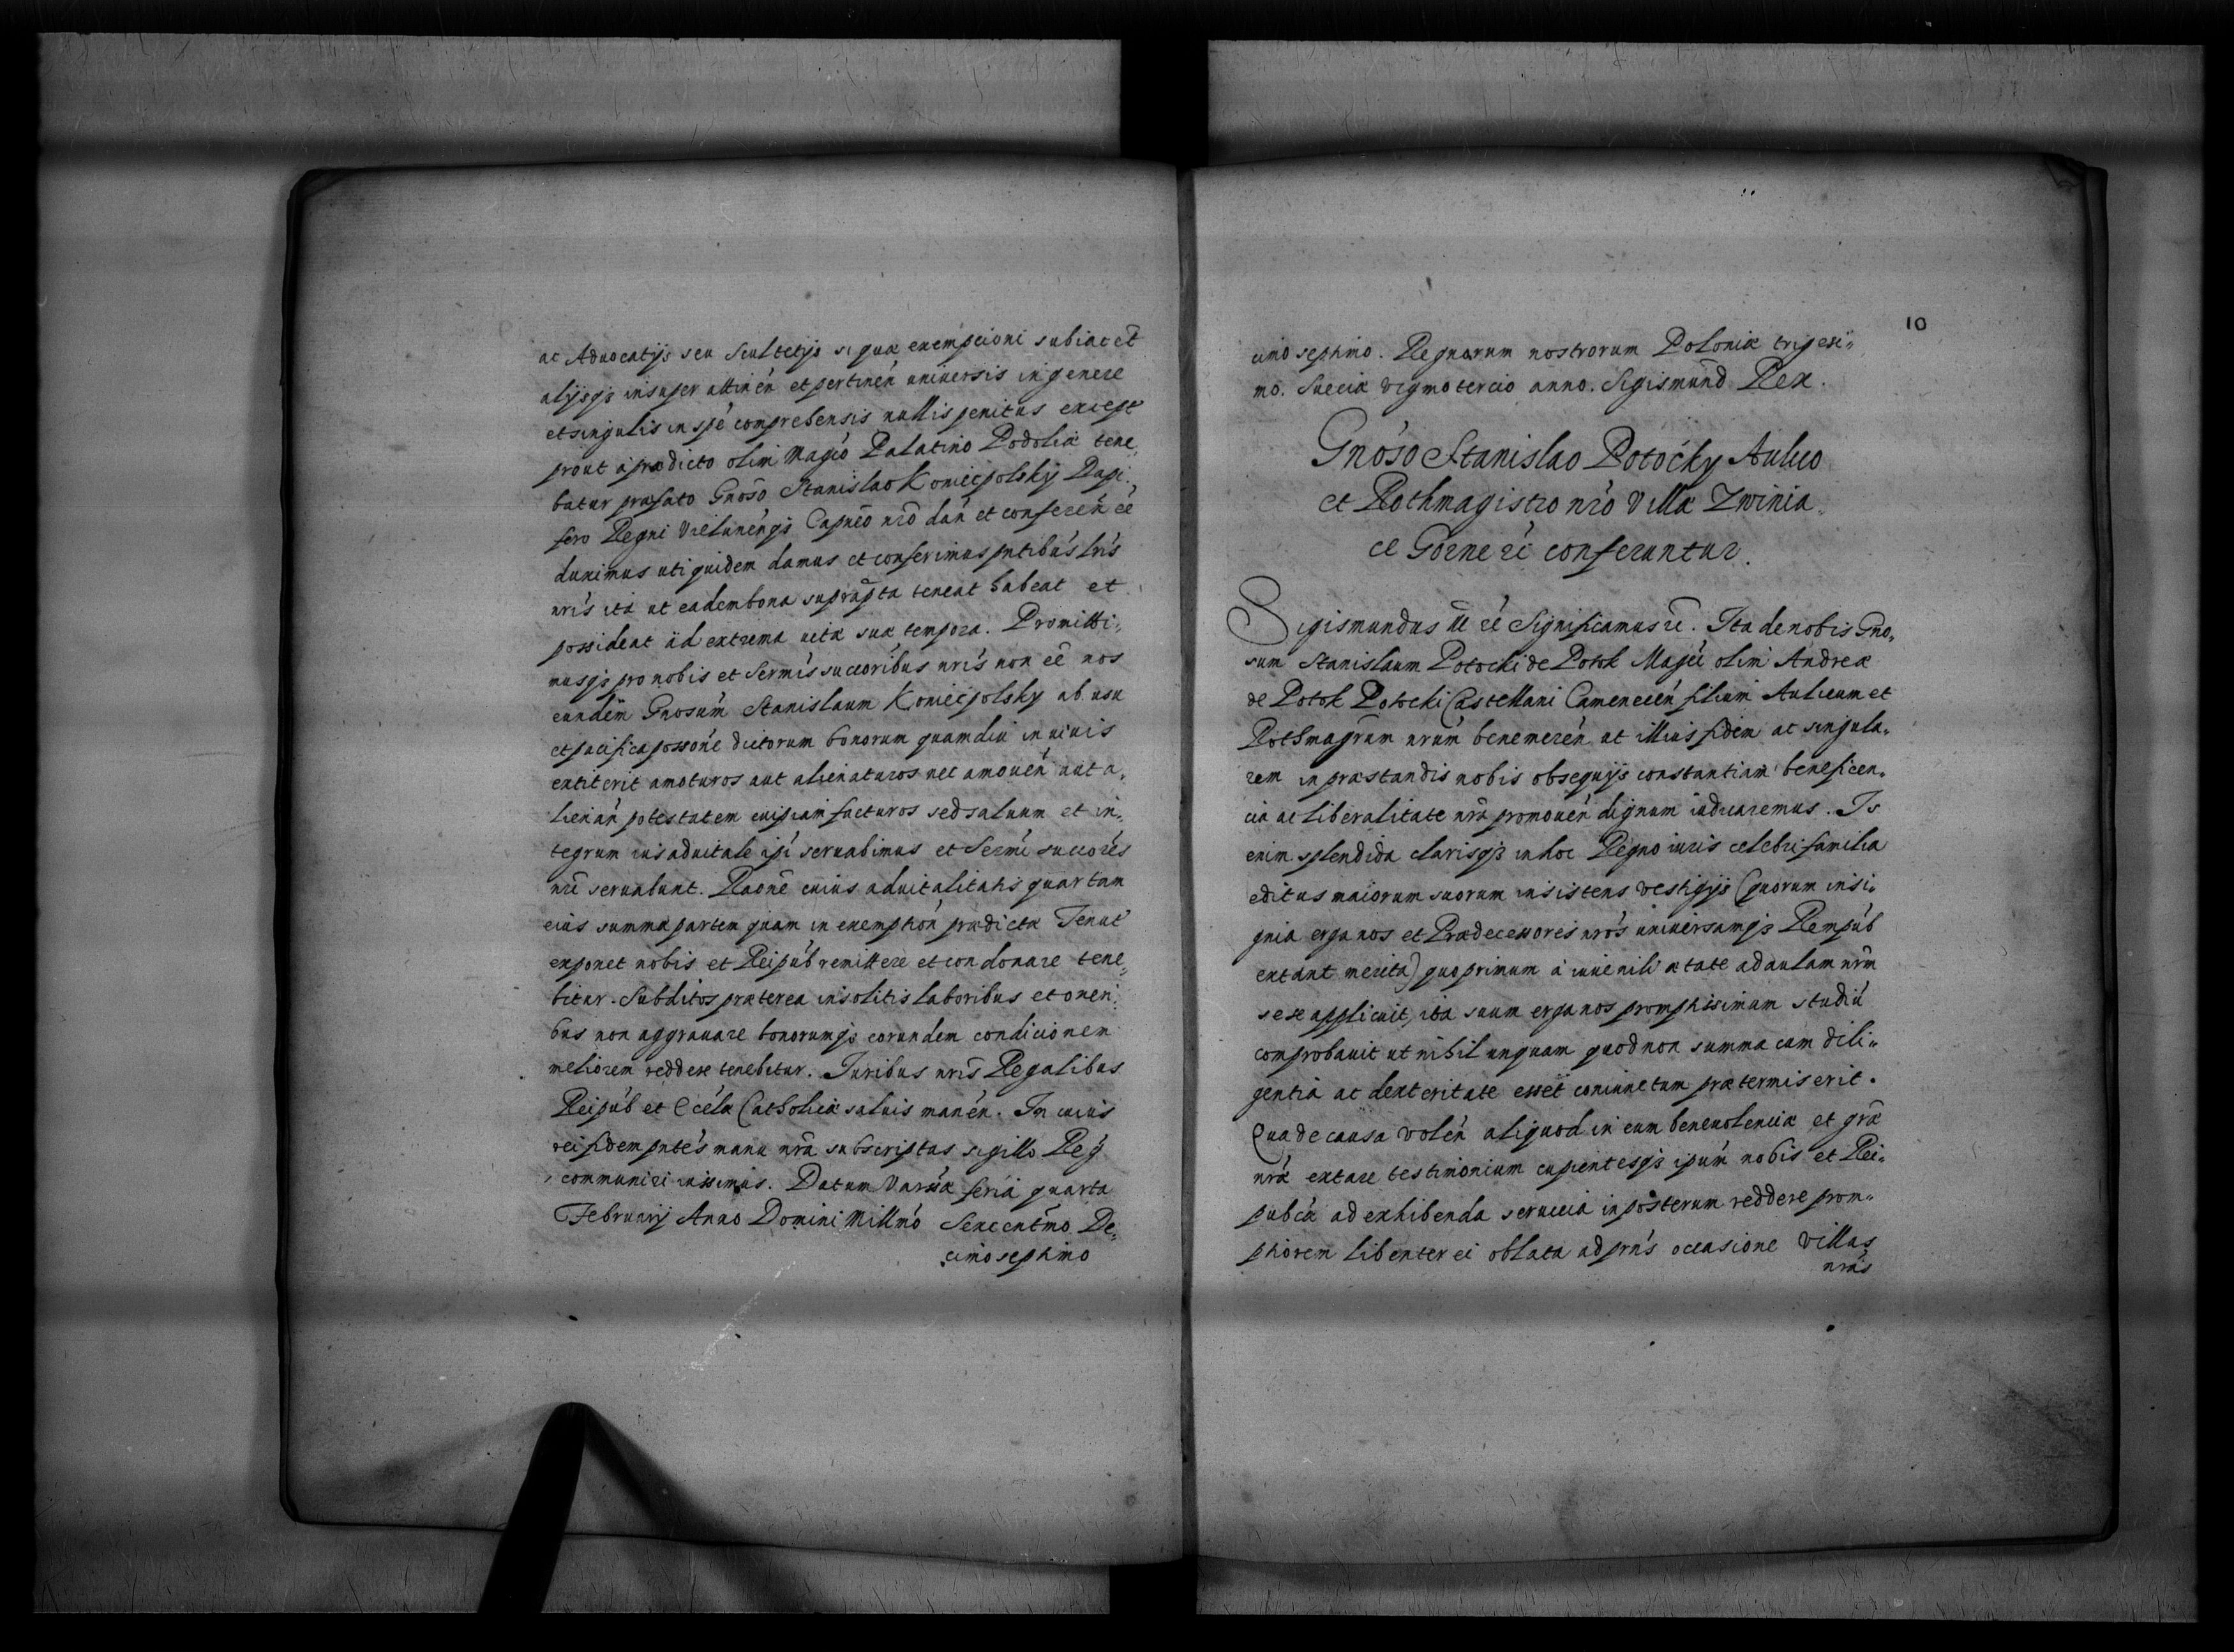 ac Aduocatijs seu Scultetijs si quæ exempcioni subiacēt
alijsqȝ insuper attinēn et pertinēn uniuersis in genere
et singulis in spē comprehensis nullis penitus except
prout a prædicto olim Magco Palatino Podoliæ tene„
batur præfato Gnoso Stanislao Koniecpolsky Dapi„
fero Regni Vielunēnqȝ Capnēo nrō dan et conferēn cē
duximus uti quidem damus et conferimus pntibus lris
nris ita ut eadem bona suprapta teneat habeat et
possideat ad extrema uitæ suæ tempora. Promitti„
musqȝ pro nobis et Sermis succoribus nris non eē nos
eundem Gnosum Stanislaum Koniecpolsky ab usu
et pacifica possone dictorum bonorum quamdiu in uiuis
extiterit amoturos aut alienaturos nec amouen aut a„
lienan potestatem cuipiam facturos sed saluum et in„
tegrum ius aduitale ipi seruabimus et Sermi succores
nri seruabunt. Raone cuius aduitalitatis quartam
eius summæ partem quam in exemption prædictæ Tenut
exponet nobis et Reipub remittere et condonare tene„
bitur. Subditos præterea insolitis laboribus et oneri„
bus non aggrauare bonorumqȝ eorundem condicionem
meliorem reddere tenebitur. Iuribus nris Regalibus
Reipub et Ecclæ Catholicæ saluis manen. In cuius
rei fidem pntes manu nra subscriptas sigillo Reg
communiri iussimus. Datum Varsæ feria quarta
Februarij Anno Domini Millmo Sexcentmo De„
cimo septimo
10
cimo septimo. Regnorum nostrorum Poloniæ trigesi„
mo. Sueciæ vigmotercio anno. Sigismund Rex.
Gnoso Stanislao Potocky Aulico
et Rothmagistro nro Villæ Zwinia„
ce Gorne rc conferuntur.
Sigismundus III rc Significamus rc. Ita de nobis Gno„
sum Stanislaum Potocki de Potok Magci olim Andreæ
de Potok Potocki Castellani Camenecen filium Aulicum et
Rothmagrum nrum benemeren ut illius fidem ac singula„
rem in præstandis nobis obsequijs constantiam beneficen„
cia ac liberalitate nra promouen dignum iudicaremus. Is
enim splendida clarisqȝ in hoc Regno uiris celebri familia
editus maiorum suorum insistens vestigijs (quorum insi„
gnia erga nos et Prædecessores nros uniuersamqȝ Rempub
extant merita) quo primum a iuuenili ætate ad aulam nrm
sese applicuit, ita suum erga nos promptissimum studiu
comprobauit ut nihil unquam quod non summa cum dili„
gentia ac dexteritate esset coniunctum prætermiserit.
Qua de causa volen aliquod in eum beneuolenciæ et græ
nræ extare testimonium cupientesqȝ ipum nobis et Rei„
pubcæ ad exhibenda seruicia in posterum reddere prom„
ptiorem libenter ei oblata ad prns occasione villas
nras